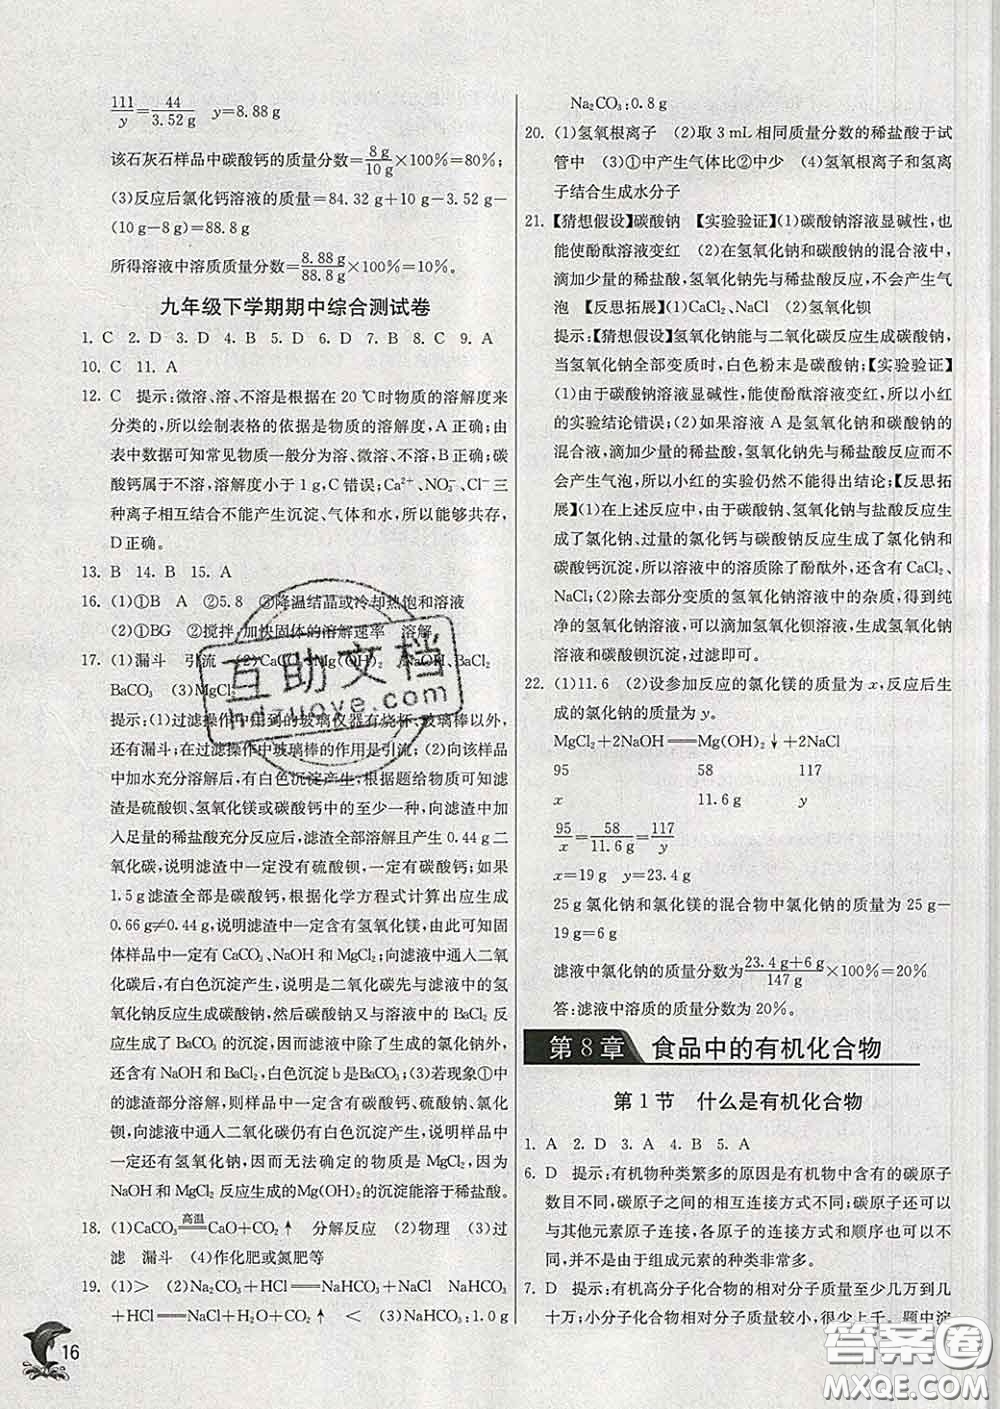 111/y=44/3.52 g　y=8.88 g
该石灰石样品中碳酸钙的质量分数=8 g/10 g×100%=80%;
(3)反应后氯化钙溶液的质量=84.32 g+10 g-3.52 g-
(10 g-8 g)=88.8 g
所得溶液中溶质质量分数=8.88 g/88.8 g×100%=10%。
九年级下学期期中综合测试卷
1. C　2. D　3. D　4. B　5. D　6. D　7. B　8. C　9. A
10. C　11. A
12. C　提示:微溶、溶、不溶是根据在 20 ℃时物质的溶解度来
分类的,所以绘制表格的依据是物质的溶解度,A正确;由
表中数据可知常见物质一般分为溶、微溶、不溶,B正确;碳
酸钙属于不溶,溶解度小于1 g,C错误;Ca²⁺、NO₃⁻、Cl⁻三
种离子相互结合不能产生沉淀、气体和水,所以能够共存,
D正确。
13. B　14. B　15. A
16. (1)①B　A　②5.8　③降温结晶或冷却热饱和溶液
(2)①BG　②搅拌,加快固体的溶解速率　溶解
17. (1)漏斗　引流　(2)CaCO₃、Mg(OH)₂　NaOH、BaCl₂
BaCO₃　(3)MgCl₂
提示:(1)过滤操作中用到的玻璃仪器有烧杯、玻璃棒以外,
还有漏斗;在过滤操作中玻璃棒的作用是引流;(2)向该样品
中加水充分溶解后,有白色沉淀产生,根据题给物质可知滤
渣是硫酸钡、氢氧化镁或碳酸钙中的至少一种,向滤渣中加
入足量的稀盐酸充分反应后,滤渣全部溶解且产生0.44 g二
氧化碳,说明滤渣中一定没有硫酸钡,一定有碳酸钙;如果
1.5 g滤渣全部是碳酸钙,根据化学方程式计算出应生成
0.66 g≠0.44 g,说明滤渣中一定含有氢氧化镁,由此可知固
体样品中一定有 CaCO₃、NaOH和MgCl₂;向滤液中通入二氧
化碳后,有白色沉淀产生,说明是二氧化碳先与滤液中的氢
氧化钠反应生成碳酸钠,然后碳酸钠又与溶液中的 BaCl₂ 反
应生成了 BaCO₃ 的沉淀,因而滤液的成分中除氯化钠外,还
有 NaOH和 BaCl₂,白色沉淀 b是BaCO₃;(3)若现象①中的
滤渣部分溶解,则样品中一定含有硫酸镁、硫酸钠、氯化
钡,向滤液中通入二氧化碳仍有白色沉淀产生,则样品中一定
还有氢氧化钠,因而无法确定的物质是 MgCl₂,因为
BaCl₂ 与MgSO₄ 和 NaOH生成 Mg(OH)₂ 的沉淀能溶于盐酸。
18. (1)CaCO₃ 高温═ CaO+CO₂↑　分解反应　(2)物理　(3)过
滤　漏斗　(4)作化肥或氮肥等
19. (1)>　(2)Na₂CO₃+HCl══NaHCO₃+NaCl　NaHCO₃
+HCl══NaCl+H₂O+CO₂↑　<　(3)NaHCO₃:1.0 g
16
Na₂CO₃:0.8 g
20. (1)氢氧根离子　(2)取 3 mL 相同质量分数的稀盐酸于试
管中　(3)①中产生气体比②中少　(4)氢氧根离子和氢离
子结合生成水分子
21. 【猜想假设】碳酸钠　【实验验证】(1)碳酸钠溶液显碱性,也
能使酚酞溶液变红　(2)在氢氧化钠和碳酸钠的混合液中,
滴加少量的稀盐酸,氢氧化钠先与稀盐酸反应,不会产生气
泡　【反思拓展】(1)CaCl₂、NaCl　(2)氢氧化钡
提示:【猜想假设】氢氧化钠能与二氧化碳反应生成碳酸钠,
当氢氧化钠全部变质时,白色粉末是碳酸钠;【实验验证】
(1)由于碳酸钠溶液显碱性,能使酚酞溶液变红,所以小红
的实验结论错误;(2)如果溶液 A 是氢氧化钠和碳酸钠的
混合液,滴加少量的稀盐酸,稀盐酸先与氢氧化钠反应而不
产生气泡,所以小红的实验仍然不能得出结论;【反思拓
展】(1)在上述反应中,碳酸钠、氢氧化钠与稀盐酸反应生成
了氯化钠、过量的氯化钙与碳酸钠反应生成了氯化钠和碳
酸钙沉淀,所以滤液中除了酚酞外,还含有 CaCl₂ 和
NaCl;(2)除去部分变质的氢氧化钠溶液中的杂质,得到纯
净的氢氧化钠溶液,可以滴加氢氧化钡溶液,生成氢氧化
钠和碳酸钡沉淀,过滤即可。
22. (1)11.6　(2)设参加反应的氯化镁的质量为 x,反应后生
成的氯化钠的质量为 y。
MgCl₂+2NaOH══Mg(OH)₂↓+2NaCl
95　58　117
x　11.6 g　y
95/x=58/11.6 g=117/y
x=19 g　y=23.4 g
25 g 氯化钠和氯化镁的混合物中氯化钠的质量为 25 g-
19 g=6 g
滤液中氯化钠的质量分数为(23.4 g+6 g)/147 g×100%=20%
答:滤液中溶质的质量分数为20%。
第 8 章　食品中的有机化合物
第 1 节　什么是有机化合物
1. A　2. D　3. A　4. B　5. A
6. D　提示:有机物种类繁多的原因是有机物中含有的碳原子
数目不同,碳原子之间的相互连接方式不同;碳原子还可以
与其他元素原子连接,各原子的连接方式和顺序也可以不
同,并不是由于组成元素的种类非常多。
7. D　提示:有机高分子化合物的相对分子质量至少几万到几
十万;小分子化合物相对分子质量较小,很少上千。题中淀
互助文档
hdzuoye.com
答案圈
MXQE.COM